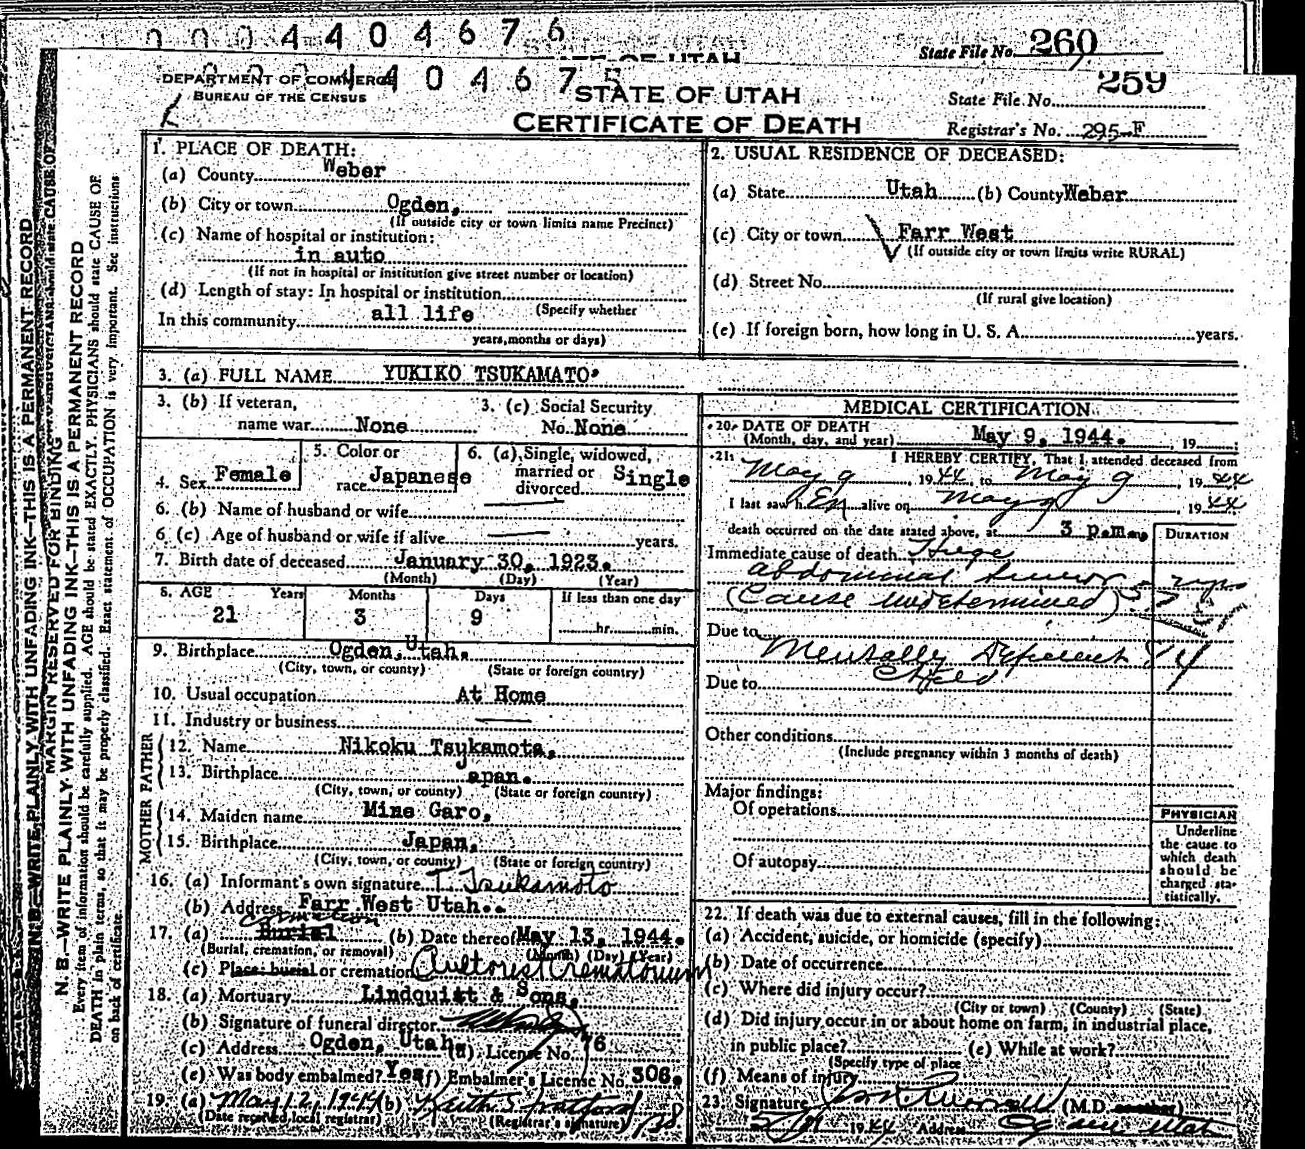 0 0 0 4 4 0 4 6 7 6
STATE OF UTAH
State File No. 260
DEPARTMENT OF COMMERCE
BUREAU OF THE CENSUS
4 4 0 4 6 7 5
STATE OF UTAH
CERTIFICATE OF DEATH
State File No. 259
Registrar's No. 295-F
N. B.—WRITE PLAINLY WITH UNFADING INK—THIS IS A PERMANENT RECORD
MARGIN RESERVED FOR BINDING
N. B.—WRITE PLAINLY WITH UNFADING INK—THIS IS A PERMANENT RECORD
Every item of information should be carefully supplied. AGE should be stated EXACTLY. PHYSICIANS should state CAUSE OF
DEATH in plain terms, so that it may be properly classified. Exact statement of OCCUPATION is very important. See instructions
on back of certificate.
1. PLACE OF DEATH:
(a) County Weber
(b) City or town Ogden,
(If outside city or town limits name Precinct)
(c) Name of hospital or institution:
in auto
(If not in hospital or institution give street number or location)
(d) Length of stay: In hospital or institution
(Specify whether
In this community all life
years, months or days)
2. USUAL RESIDENCE OF DECEASED:
(a) State Utah (b) County Weber
(c) City or town Farr West
(If outside city or town limits write RURAL)
(d) Street No.
(If rural give location)
(e) If foreign born, how long in U. S. A. years.
3. (a) FULL NAME YUKIKO TSUKAMATO
3. (b) If veteran, name war None
3. (c) Social Security No. None
4. Sex Female
5. Color or race Japanese
6. (a) Single, widowed, married or divorced Single
6. (b) Name of husband or wife
6 (c) Age of husband or wife if alive years.
7. Birth date of deceased January 30, 1923.
(Month) (Day) (Year)
8. AGE Years Months Days If less than one day
21 3 9 hr. min.
9. Birthplace Ogden, Utah.
(City, town, or county) (State or foreign country)
10. Usual occupation At Home
11. Industry or business
FATHER
12. Name Nikoku Tsukamota,
13. Birthplace Japan.
(City, town, or county) (State or foreign country)
MOTHER
14. Maiden name Mine Garo,
15. Birthplace Japan,
(City, town, or county) (State or foreign country)
16. (a) Informant's own signature T. Tsukamoto
(b) Address Farr West Utah..
Cremation
17. (a) Burial (b) Date thereof May 13, 1944.
(Burial, cremation, or removal) (Month) (Day) (Year)
(c) Place: burial or cremation Aultorest Crematorium
18. (a) Mortuary Lindquist & Sons,
(b) Signature of funeral director
(c) Address Ogden, Utah. (d) License No. 76
(e) Was body embalmed? Yes (f) Embalmer's License No. 306.
19. (a) May 12, 1944 (b)
(Date received local registrar) (Registrar's signature)
MEDICAL CERTIFICATION
20. DATE OF DEATH
(Month, day, and year) May 9, 1944. , 19
21. I HEREBY CERTIFY, That I attended deceased from
May 9, 1944, to May 9, 1944
I last saw h er alive on May 9, 1944
death occurred on the date stated above, at 3 p.m.
DURATION
Immediate cause of death Huge
abdominal tumor 5 yrs
(Cause undetermined)
Due to
Mentally Deficient
Child
Due to
Other conditions
(Include pregnancy within 3 months of death)
Major findings:
Of operations
Of autopsy
PHYSICIAN
Underline
the cause to
which death
should be
charged sta-
tistically.
22. If death was due to external causes, fill in the following:
(a) Accident, suicide, or homicide (specify)
(b) Date of occurrence
(c) Where did injury occur?
(City or town) (County) (State)
(d) Did injury occur in or about home on farm, in industrial place,
in public place? (e) While at work?
(Specify type of place
(f) Means of injury
23. Signature (M.D.
1944 Address Ogden Utah